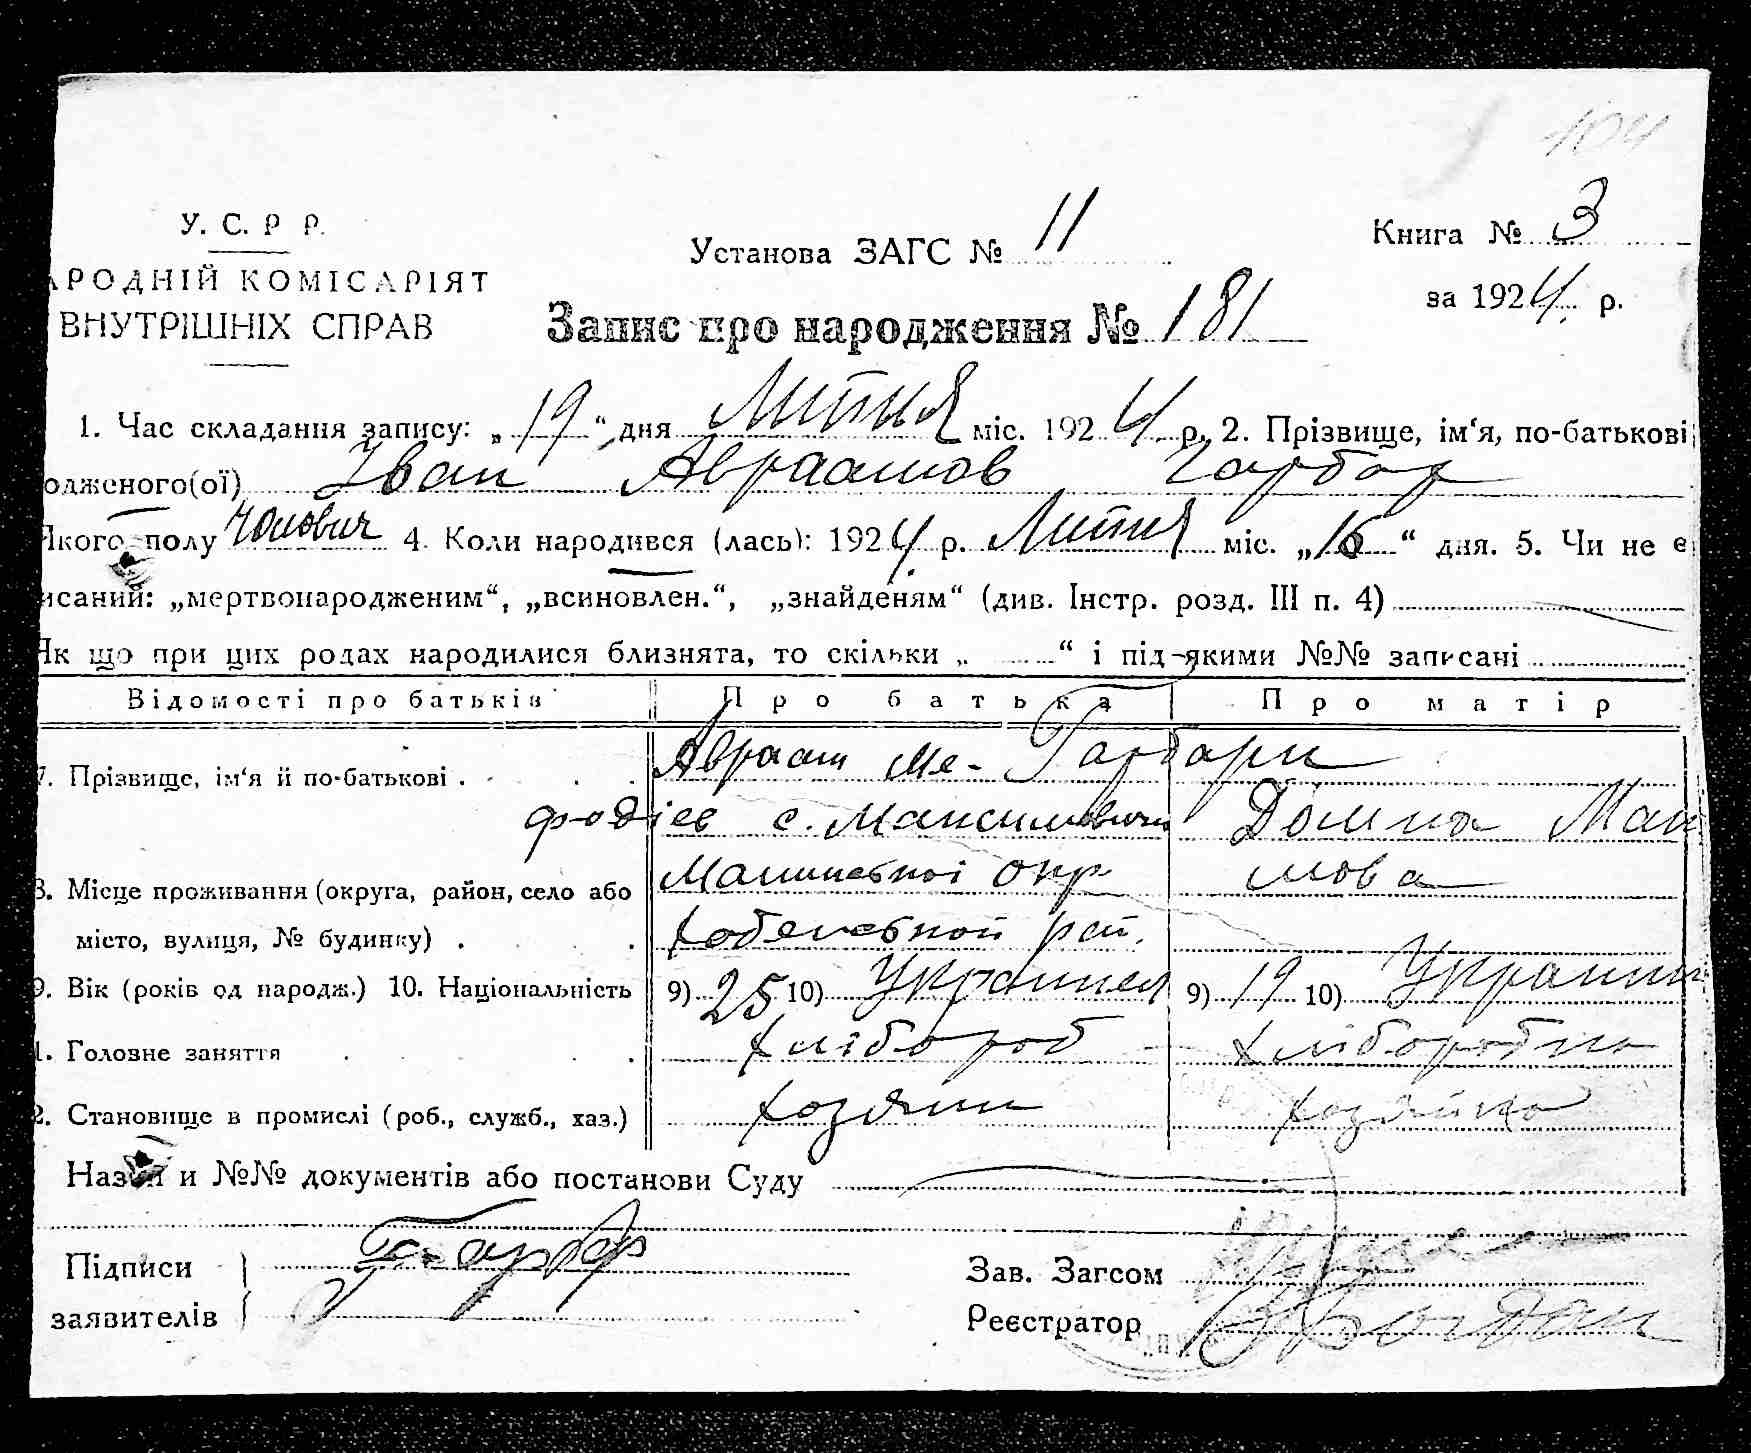 104
У. С. Р Р.
АРОДНІЙ КОМІСАРІЯТ
ВНУТРІШНІХ СПРАВ
Установа ЗАГС № 11
Книга № 3
за 1924 р.
Запис про народження № 181
1. Час складання запису: „19“ дня Липня міс. 1924 р. 2. Прізвище, ім‘я, по-батькові
одженого(ої) Іван Авраамов Гарбар
Якого полу чоловіч 4. Коли народився (лась): 1924 р. Липня міс. „16“ дня. 5. Чи не є
исаний: „мертвонародженим“, „всиновлен.“, „знайденям“ (див. Інстр. розд. III п. 4)
Як що при цих родах народилися близнята, то скільки „ “ і під якими №№ записані
Відомості про батьків Про батька Про матір
7. Прізвище, ім‘я й по-батькові . Авраам Ме- Гарбари
фодієв с. Максимович Доміна Мак
8. Місце проживання (округа, район, село або мова
місто, вулиця, № будинку) . рай.
9. Вік (років од народж.) 10. Національність 9) 25 10) Украинец 9) 19 10) Украин
1. Головне заняття Хлібороб Хліборобка
2. Становище в промислі (роб., служб., хаз.) Хозяин Хозяйка
Назви и №№ документів або постанови Суду
Підписи Гарбар
заявителів
Зав. Загсом
Реєстратор Богдан